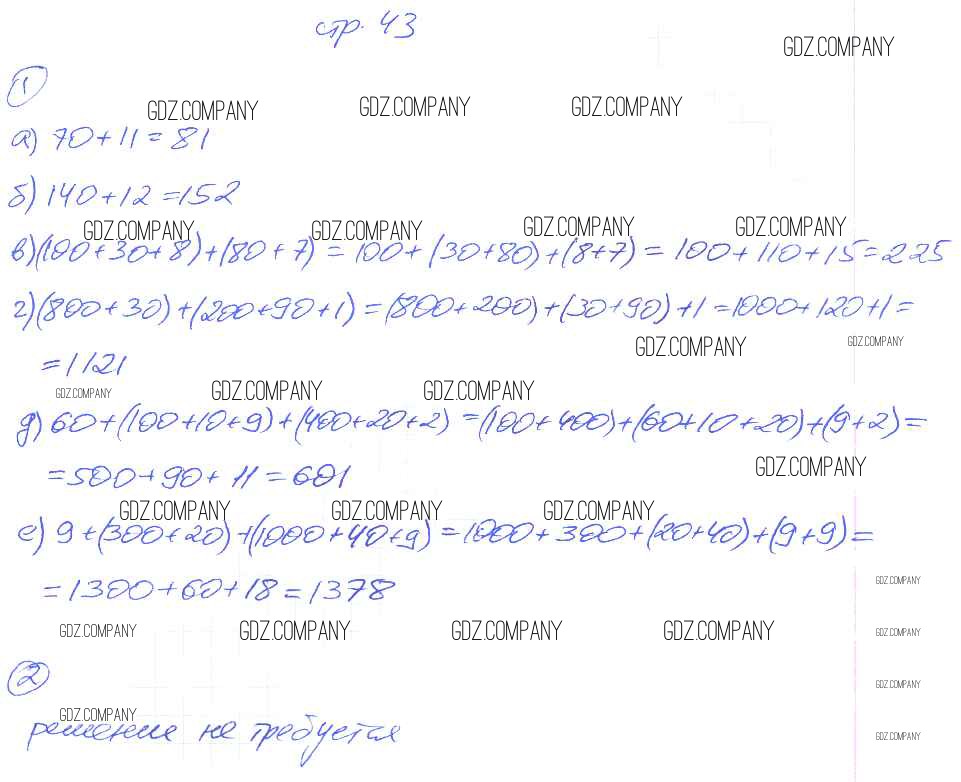 стр. 43
GDZ.COMPANY
1
GDZ.COMPANY GDZ.COMPANY GDZ.COMPANY
а) 70+11=81
б) 140+12=152
GDZ.COMPANY GDZ.COMPANY GDZ.COMPANY GDZ.COMPANY
в)(100+30+8)+(80+7)=100+(30+80)+(8+7)=100+110+15=225
г)(800+30)+(200+90+1)=(800+200)+(30+90)+1=1000+120+1=
GDZ.COMPANY GDZ.COMPANY
=1121
GDZ.COMPANY GDZ.COMPANY GDZ.COMPANY
д) 60+(100+10+9)+(400+20+2)=(100+400)+(60+10+20)+(9+2)=
GDZ.COMPANY
=500+90+11=601
GDZ.COMPANY GDZ.COMPANY GDZ.COMPANY
е) 9+(300+20)+(1000+40+9)=1000+300+(20+40)+(9+9)=
GDZ.COMPANY
=1300+60+18=1378
GDZ.COMPANY GDZ.COMPANY GDZ.COMPANY GDZ.COMPANY GDZ.COMPANY
2
GDZ.COMPANY
GDZ.COMPANY
решение не требуется
GDZ.COMPANY